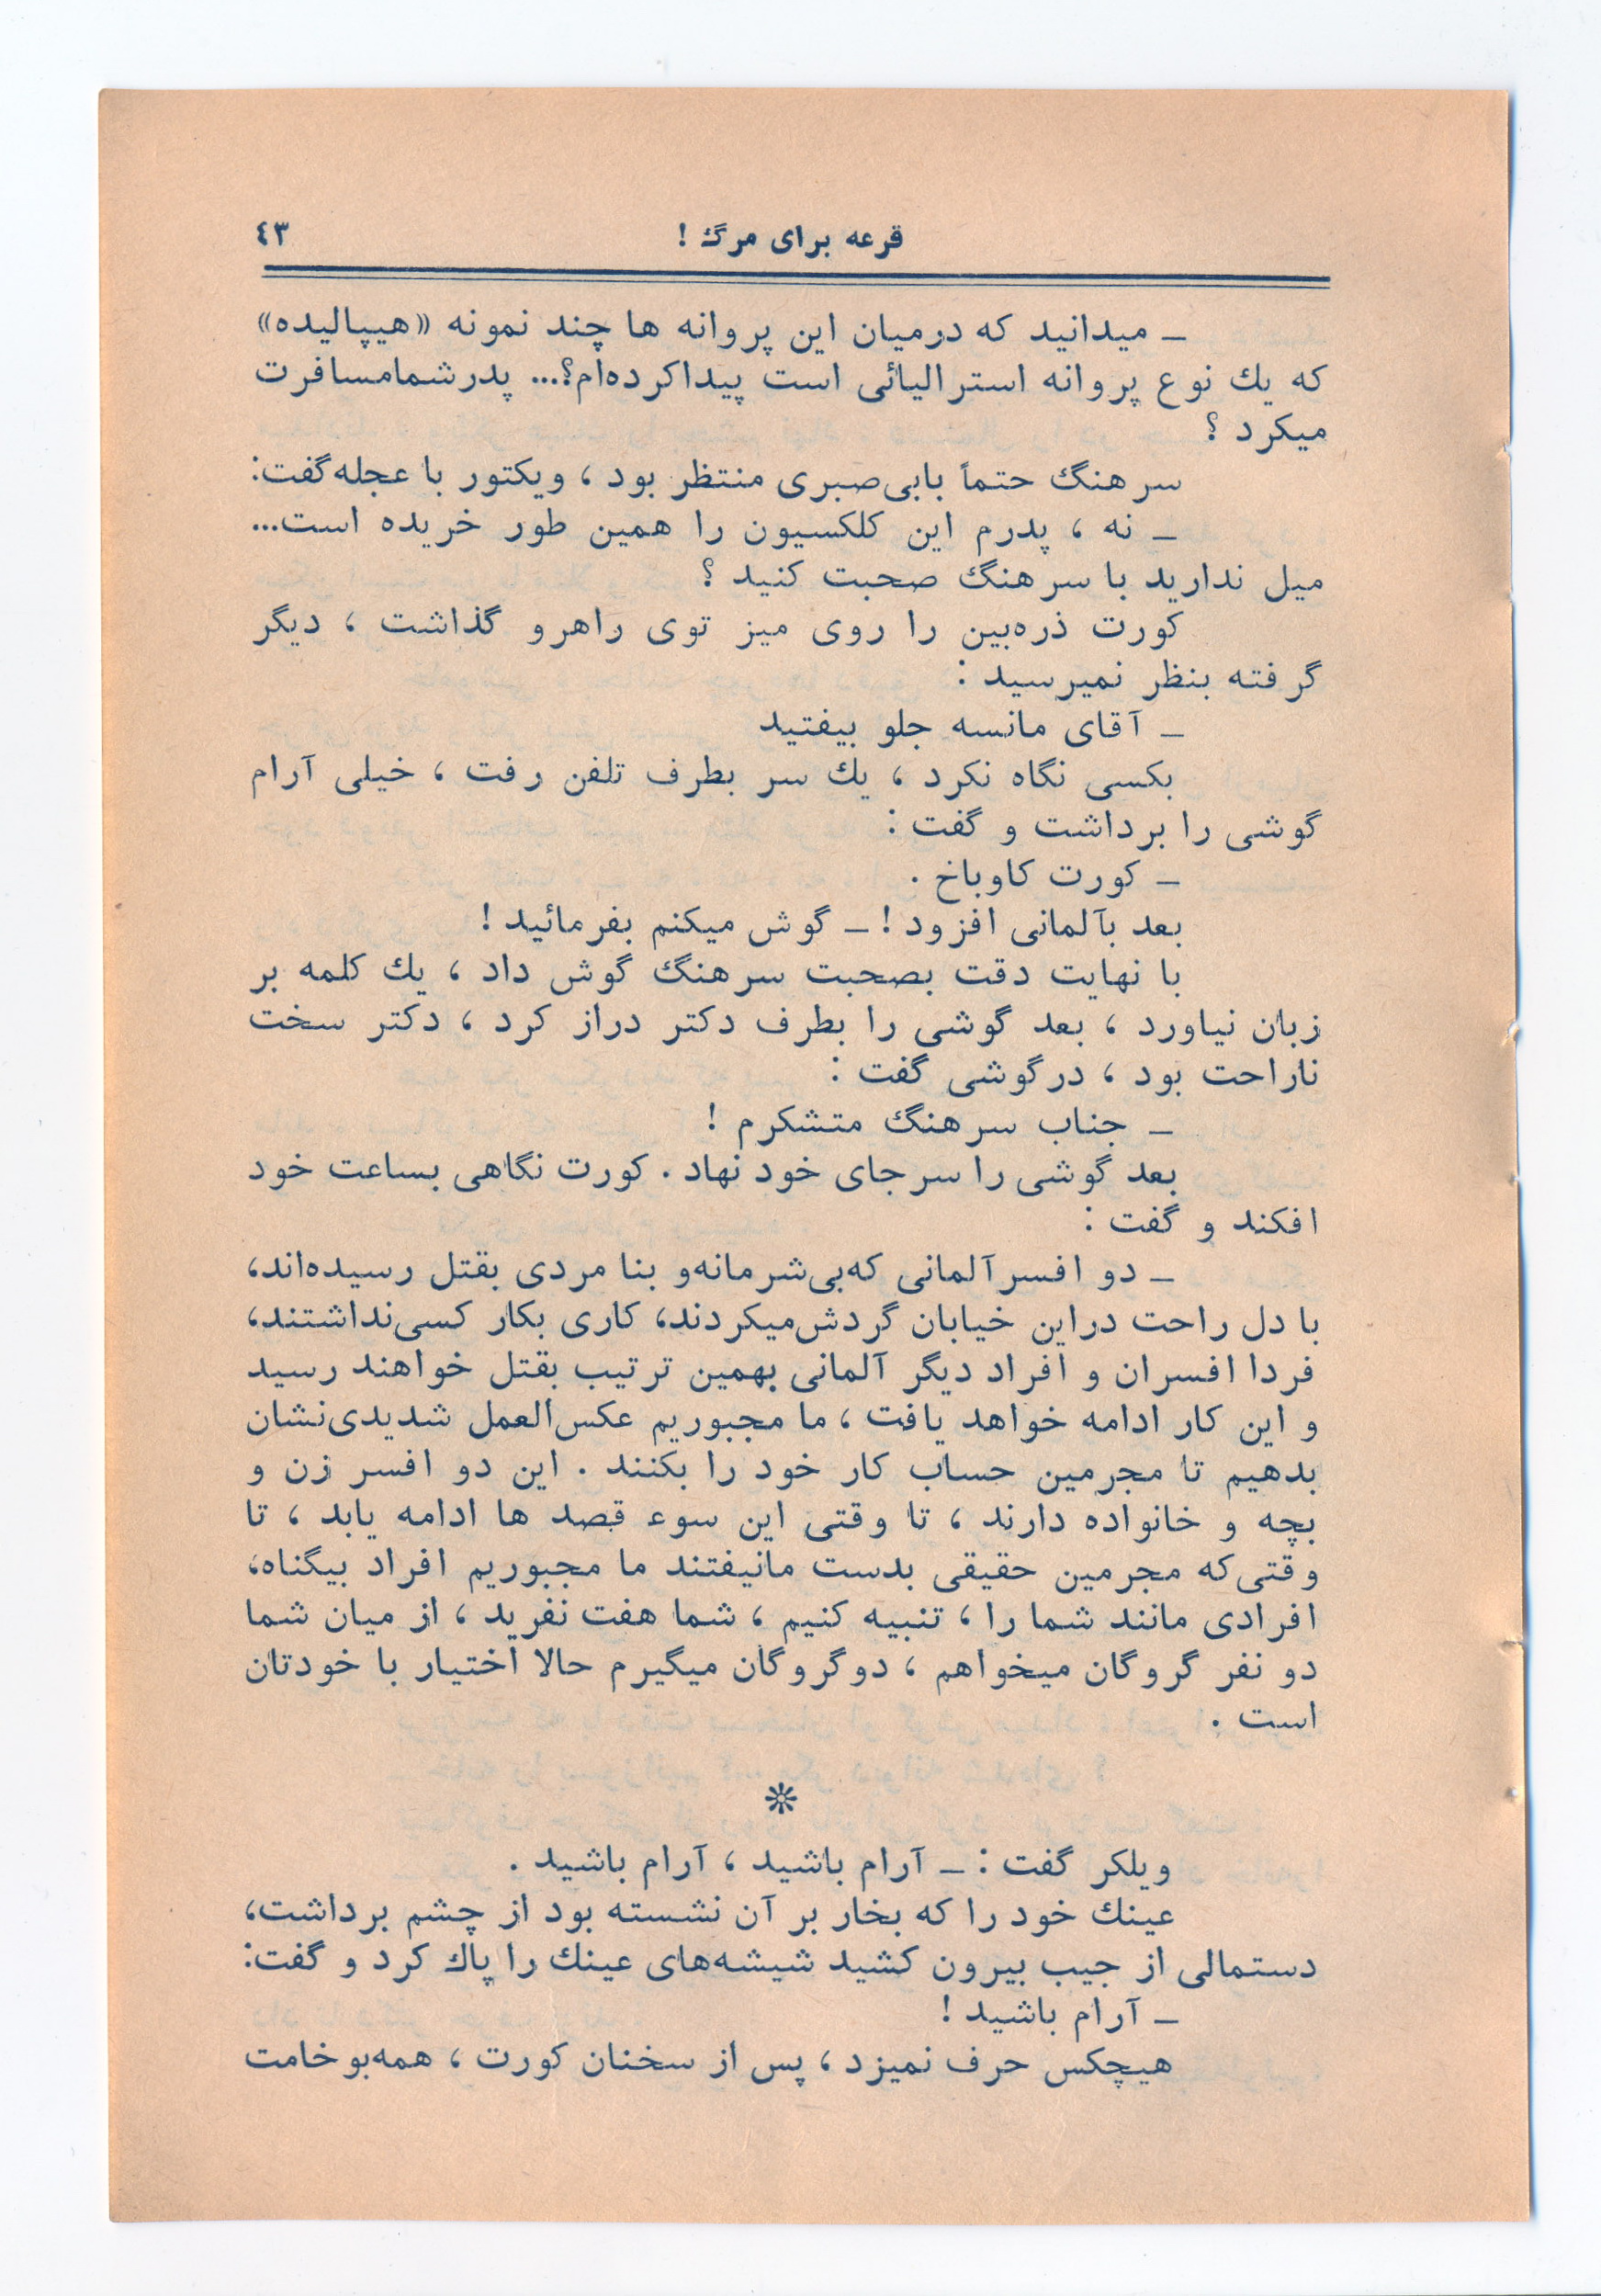 قرعه برای مرگ !
٤٣
ــ میدانید که درمیان این پروانه ها چند نمونه «هیپالیده»
که یك نوع پروانه استرالیائی است پیداکرده‌ام؟... پدرشمامسافرت
میکرد ؟
سرهنگ حتماً بابی‌صبری منتظر بود ، ویکتور با عجله‌گفت:
ــ نه ، پدرم این کلکسیون را همین طور خریده است...
میل ندارید با سرهنگ صحبت کنید ؟
کورت ذره‌بین را روی میز توی راهرو گذاشت ، دیگر
گرفته بنظر نمیرسید :
ــ آقای مانسه جلو بیفتید
بکسی نگاه نکرد ، یك سر بطرف تلفن رفت ، خیلی آرام
گوشی را برداشت و گفت :
ــ کورت کاوباخ .
بعد بآلمانی افزود ! ــ گوش میکنم بفرمائید !
با نهایت دقت بصحبت سرهنگ گوش داد ، یك کلمه بر
زبان نیاورد ، بعد گوشی را بطرف دکتر دراز کرد ، دکتر سخت
ناراحت بود ، درگوشی گفت :
ــ جناب سرهنگ متشکرم !
بعد گوشی را سرجای خود نهاد . کورت نگاهی بساعت خود
افکند و گفت :
ــ دو افسرآلمانی که‌بی‌شرمانه‌و بنا مردی بقتل رسیده‌اند،
با دل راحت دراین خیابان گردش‌میکردند، کاری بکار کسی‌نداشتند،
فردا افسران و افراد دیگر آلمانی بهمین ترتیب بقتل خواهند رسید
و این کار ادامه خواهد یافت ، ما مجبوریم عکس‌العمل شدیدی‌نشان
بدهیم تا مجرمین حساب کار خود را بکنند . این دو افسر زن و
بچه و خانواده دارند ، تا وقتی این سوء قصد ها ادامه یابد ، تا
وقتی‌که مجرمین حقیقی بدست مانیفتند ما مجبوریم افراد بیگناه،
افرادی مانند شما را ، تنبیه کنیم ، شما هفت نفرید ، از میان شما
دو نفر گروگان میخواهم ، دوگروگان میگیرم حالا اختیار با خودتان
است .
❊
ویلکر گفت : ــ آرام باشید ، آرام باشید .
عینك خود را که بخار بر آن نشسته بود از چشم برداشت،
دستمالی از جیب بیرون کشید شیشه‌های عینك را پاك کرد و گفت:
ــ آرام باشید !
هیچکس حرف نمیزد ، پس از سخنان کورت ، همه‌بوخامت